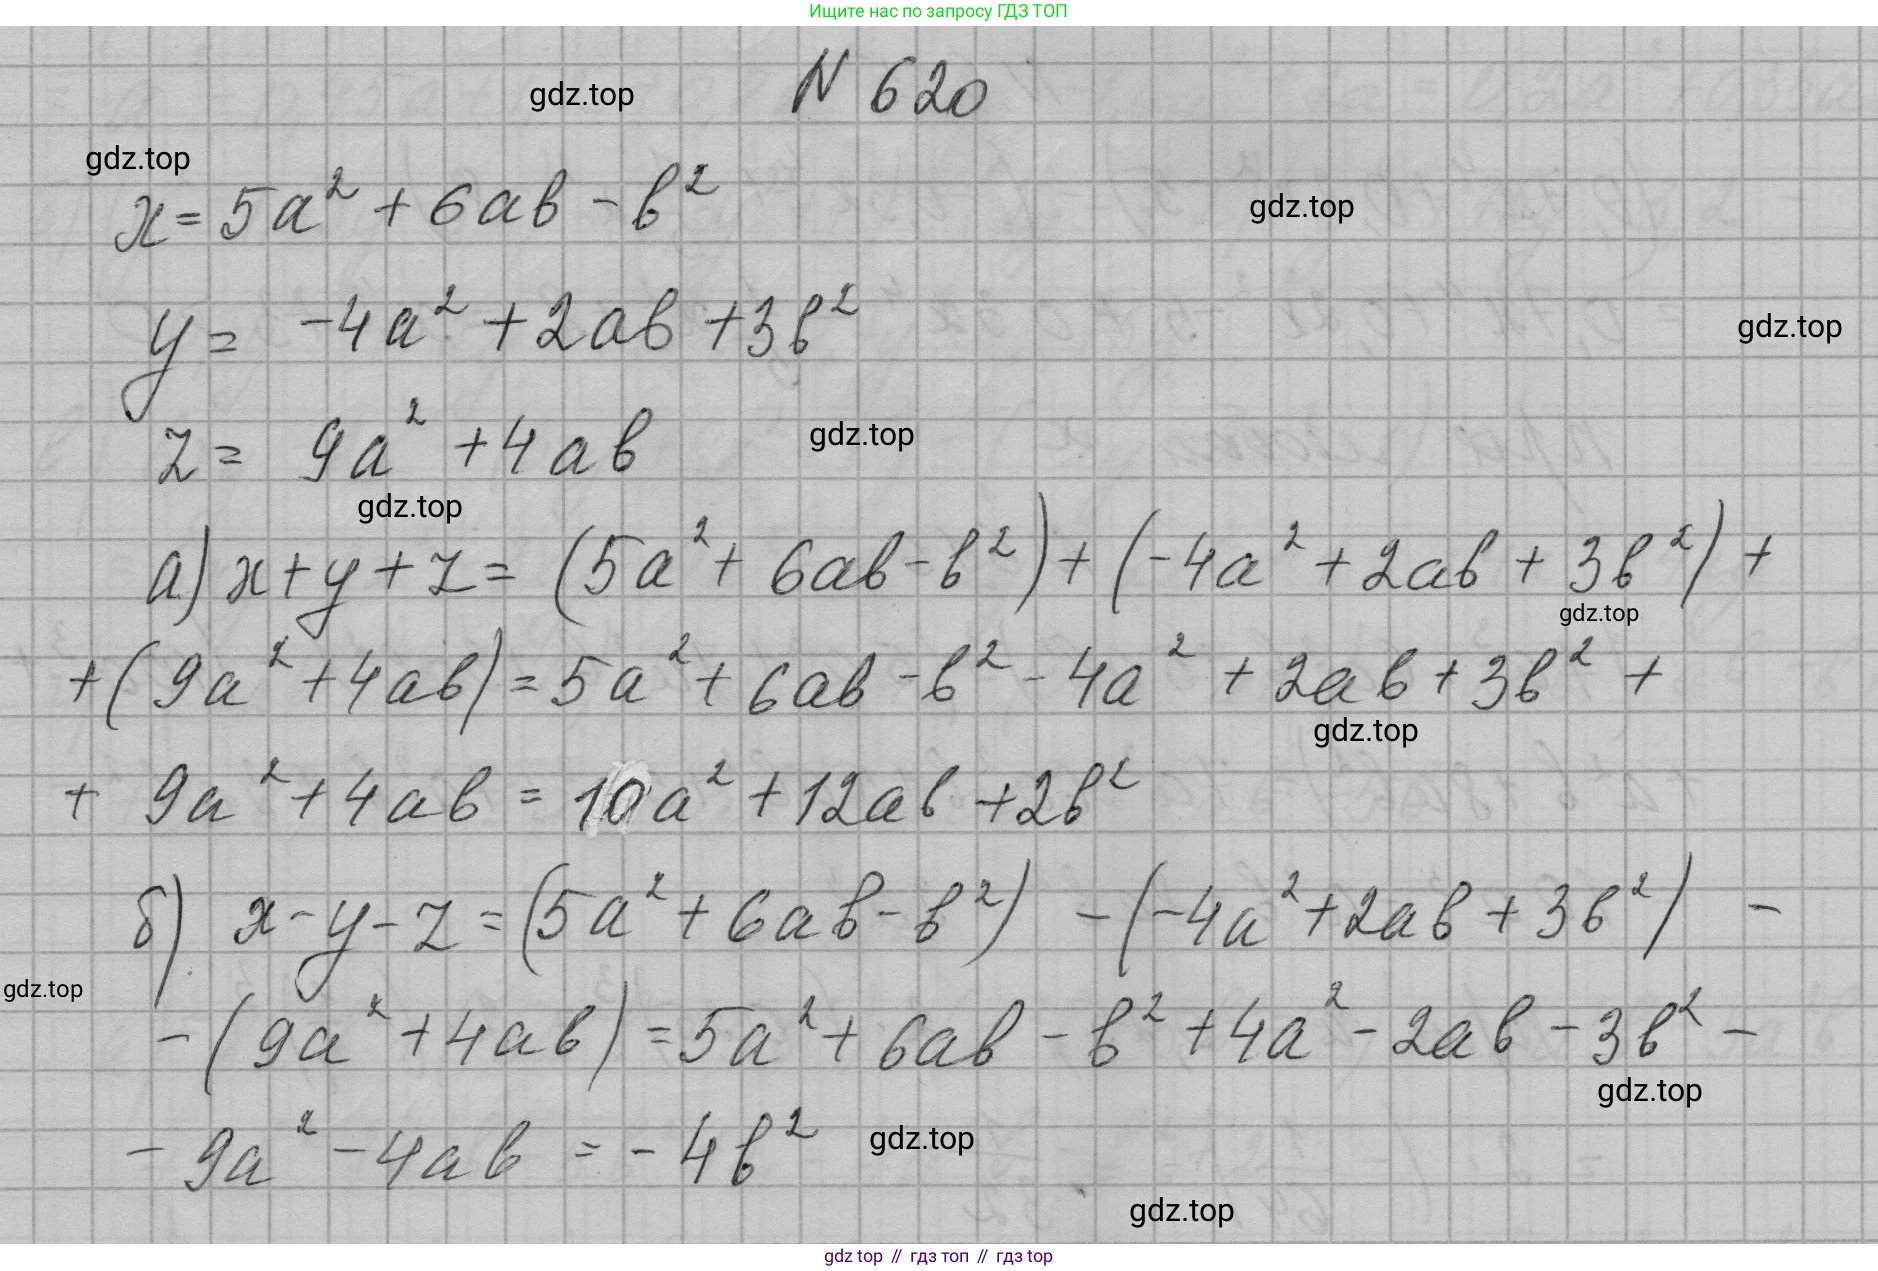 Ищите нас по запросу ГДЗ ТОП
N 620
gdz.top
gdz.top
x = 5a² + 6ab - b²
gdz.top
y = -4a² + 2ab + 3b²
gdz.top
z = 9a² + 4ab
gdz.top
gdz.top
а) x + y + z = (5a² + 6ab - b²) + (-4a² + 2ab + 3b²) +
gdz.top
+ (9a² + 4ab) = 5a² + 6ab - b² - 4a² + 2ab + 3b² +
gdz.top
+ 9a² + 4ab = 10a² + 12ab + 2b²
б) x - y - z = (5a² + 6ab - b²) - (-4a² + 2ab + 3b²) -
gdz.top
- (9a² + 4ab) = 5a² + 6ab - b² + 4a² - 2ab - 3b² -
gdz.top
- 9a² - 4ab = - 4b²
gdz.top
gdz.top
gdz top // гдз топ // гдз top